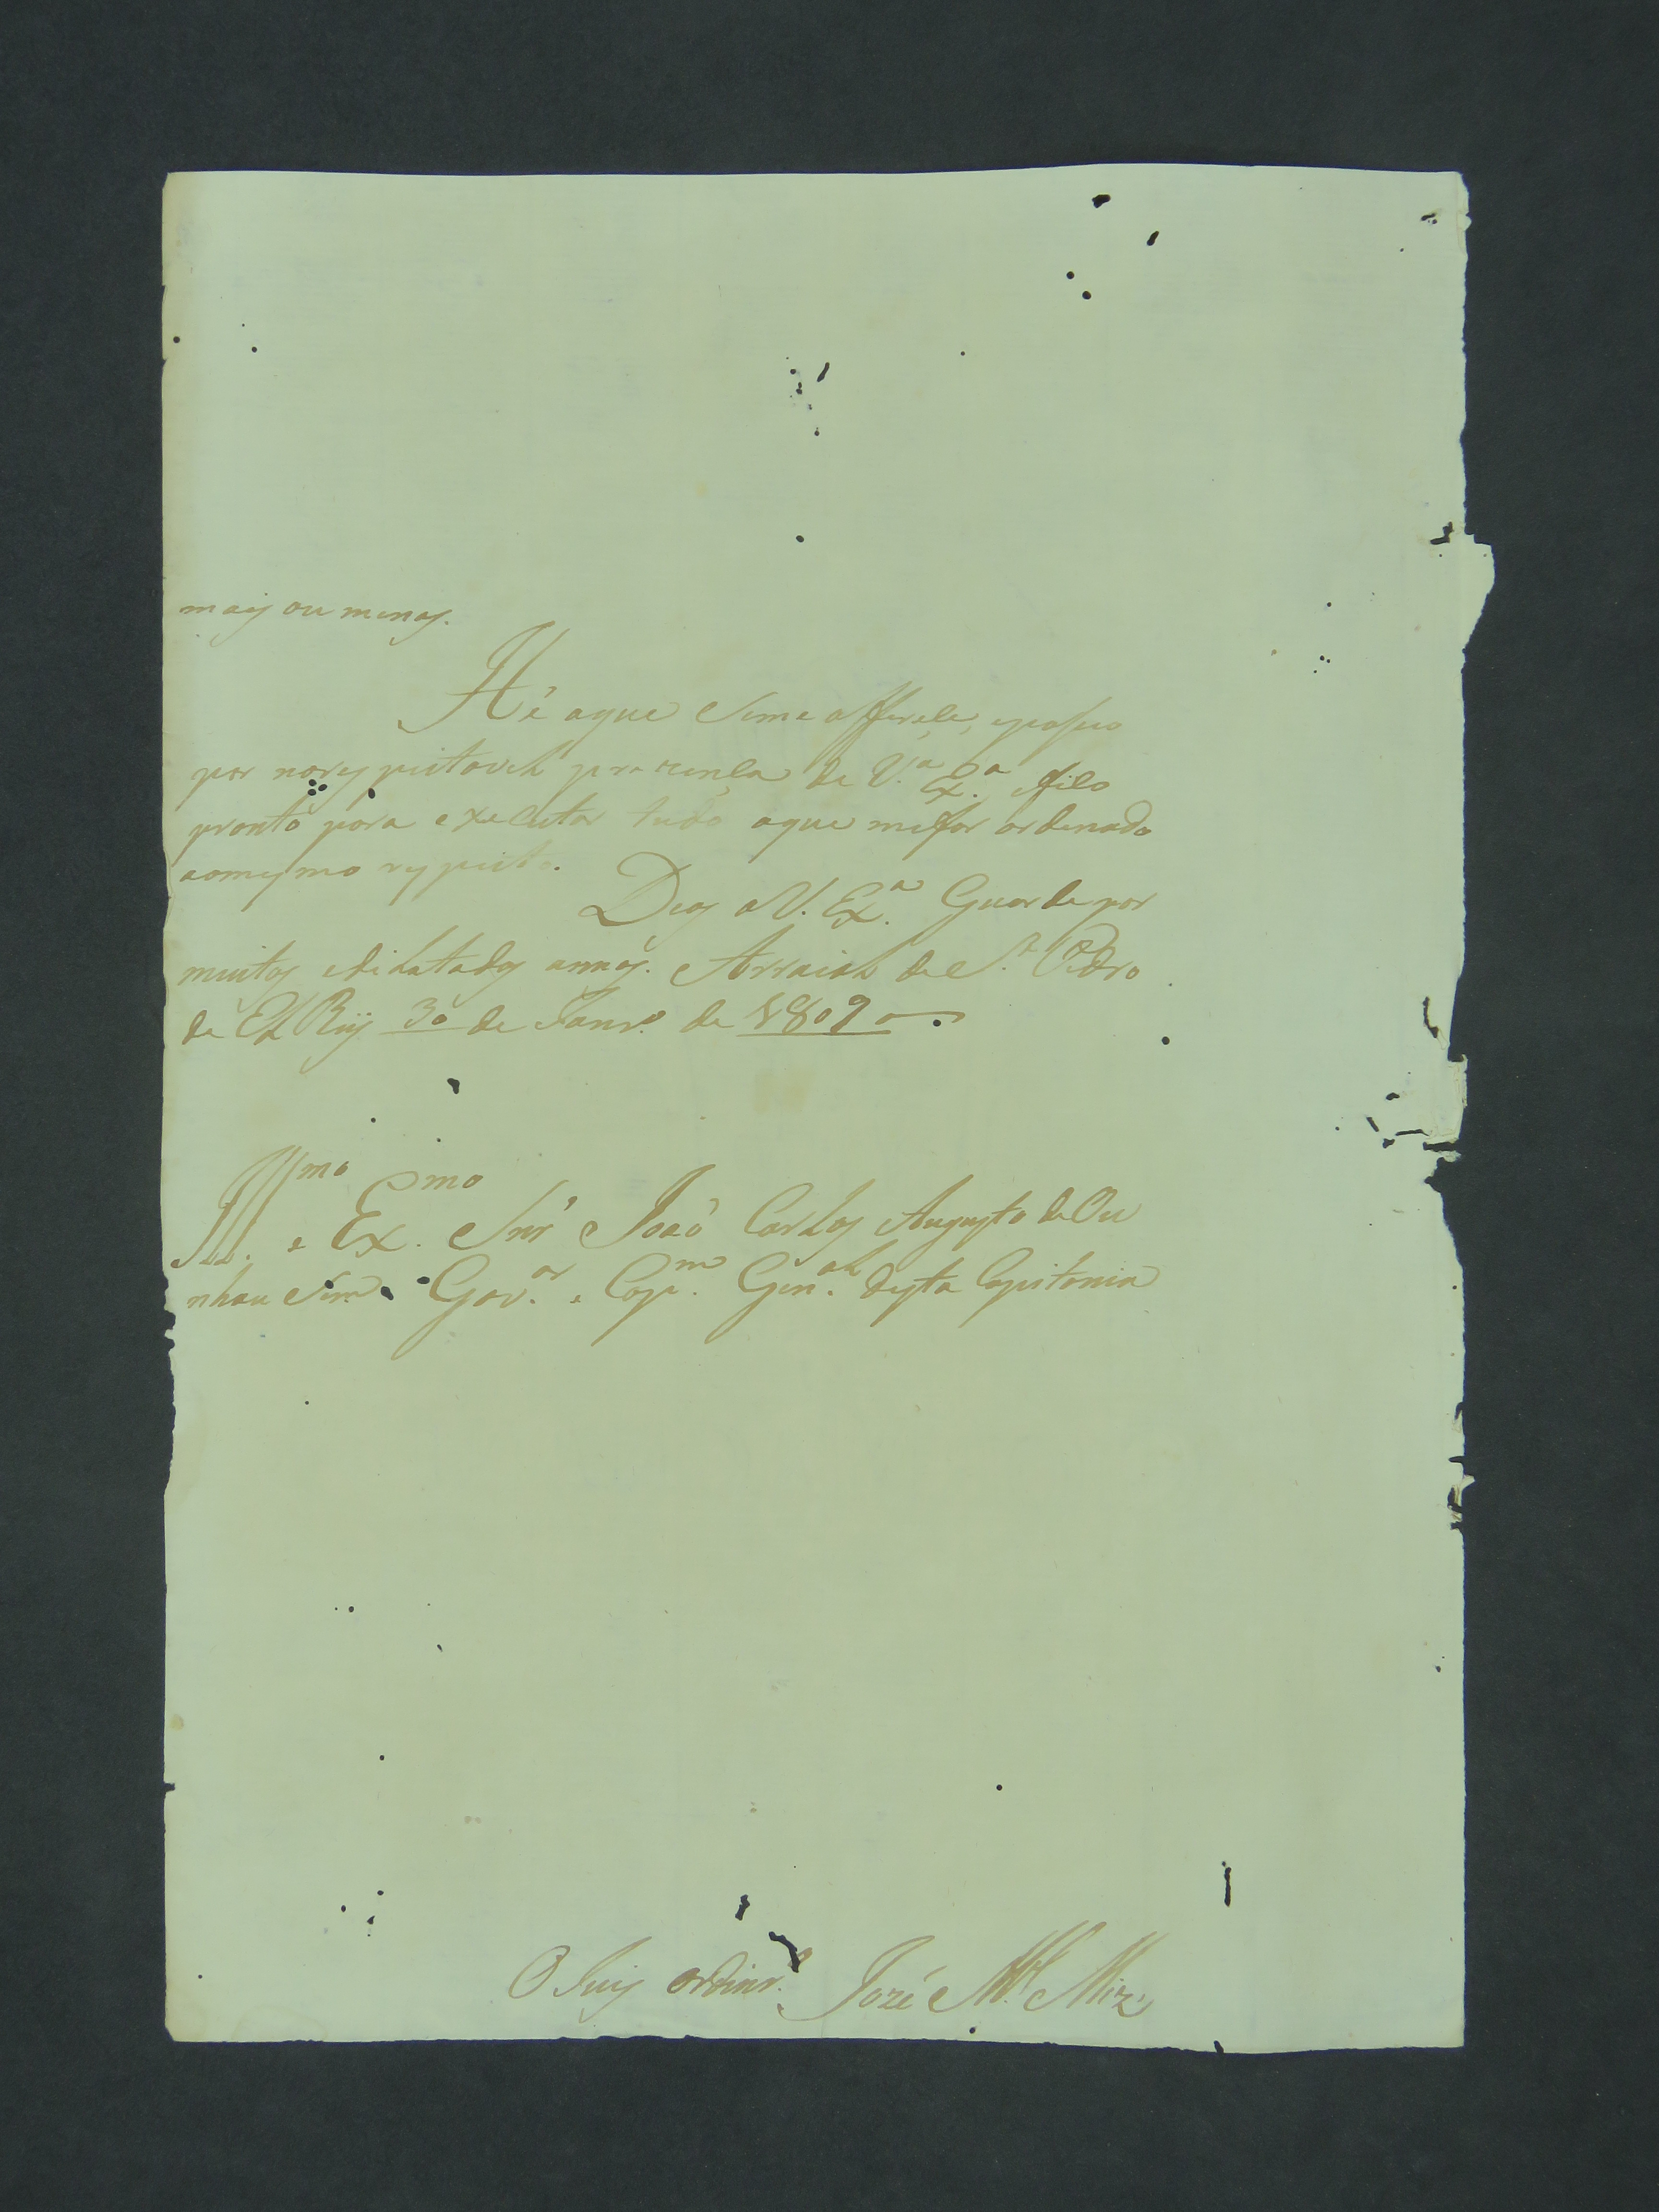 mais ou menos.
Hé aque seme offerese, eposso
por norespeitavel prezença de V.ª Ex.ª, efico
pronto para executar tudo aque mefor ordenado
aomesmo respeito.
Deos aV. Ex.ª Guarde por
muitos edilatados annos. Arraial de S. Pedro
de El Rey 30 de Janr.º de 1809
Ill.mo e Ex.mo Snr' Joaó Carlos Augusto de Ou
nhau sem Gov.or e Cap.m Gen.al desta Capitania
O Juis ordinr.º José M.el Miz'